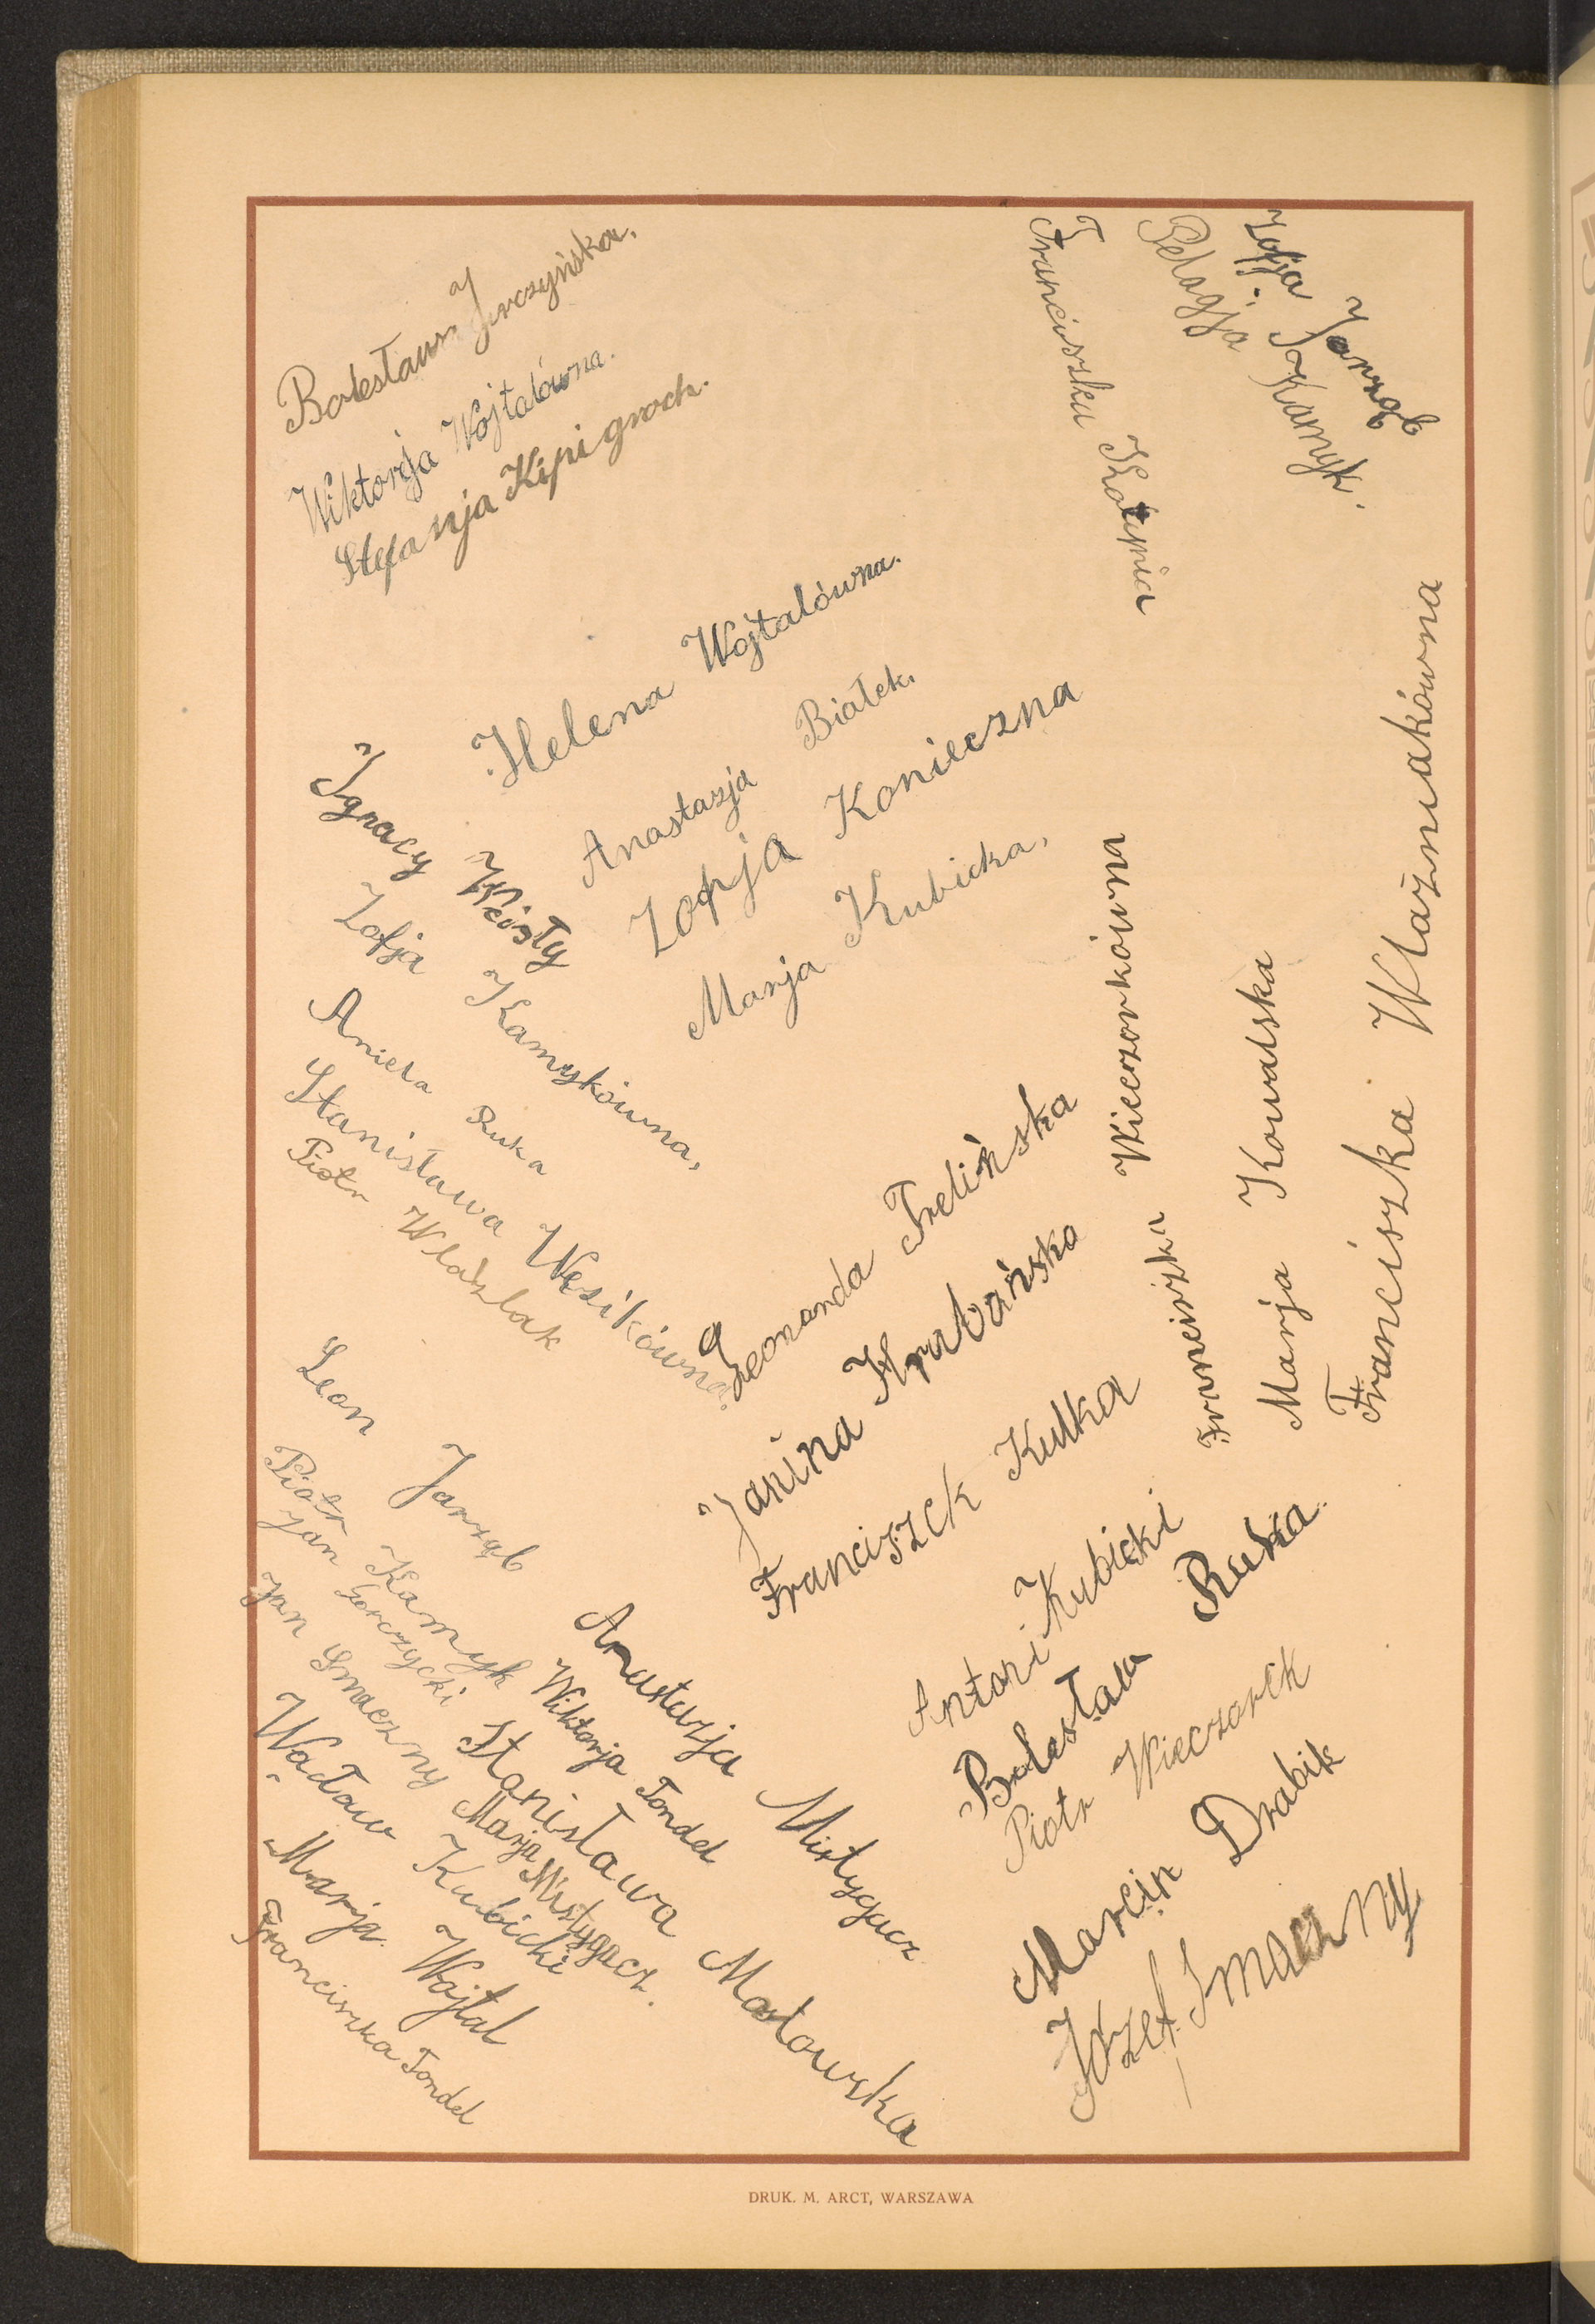 Bolesława Jurczyńska.
Wiktorja Wójtalówna.
Stefanja Kipigroch.
Zofja Jarząb
Pelagja Kamyk.
Franciszka
Helena Wojtalówna.
Anastazja Białek.
Zofja Konieczna
Marja Kubicka,
Ignacy
Zofja Kamykówna,
Aniela Ruka
Stanisława Węsikówna.
Piotr Wlaźlak
Leonarda Trelińska
Janina Hrabańska
Franciszek Kulka
Franciszka Wieczorkówna
Marja Kowalska
Franciszka Wlaźniakówna
Leon Jarząb
Piotr Kamyk
Jan Gorczycki
Jan Smaczny
Wacław Kubicki
Marja Wojtal
Franciszka Fondel
Anastazja Mistygacz
Wiktorja Fondel
Stanisława Masłowska
Marja Mistygacz.
Antoni Kubicki
Bolesława Ruka.
Piotr Wieczorek
Marcin Drabik
Józef Smaczny
DRUK. M. ARCT, WARSZAWA